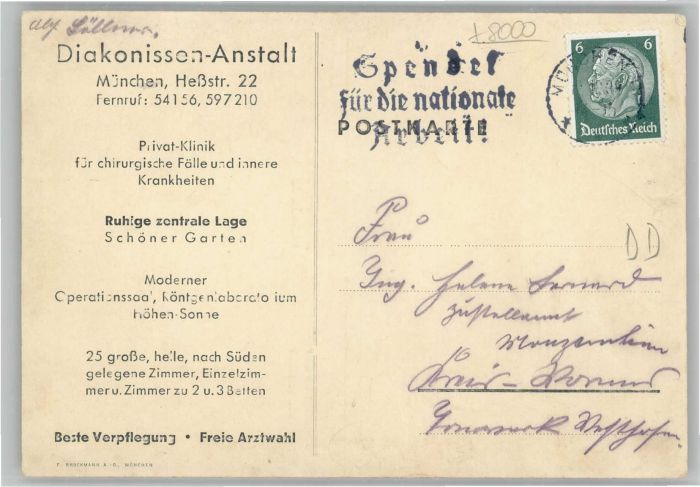 Abs.
+8000
Diakonissen-Anstalt
München, Heßstr. 22
Fernruf: 54156, 597210
Privat-Klinik
für chirurgische Fälle und innere
Krankheiten
Ruhige zentrale Lage
Schöner Garten
Moderner
Operationssaal, Röntgenlaboratorium
Höhen-Sonne
25 große, helle, nach Süden
gelegene Zimmer, Einzelzim-
mer u. Zimmer zu 2 u. 3 Betten
Beste Verpflegung • Freie Arztwahl
F. BRUCKMANN A.-G., MÜNCHEN
Spendet
für die nationale
Arbeit!
POSTKARTE
MÜNCHEN
6 6
Deutsches Reich
DD
Frau
Ing. Helene
Zustellamt
Monzernheim
Kreis-Worms
Westhofen